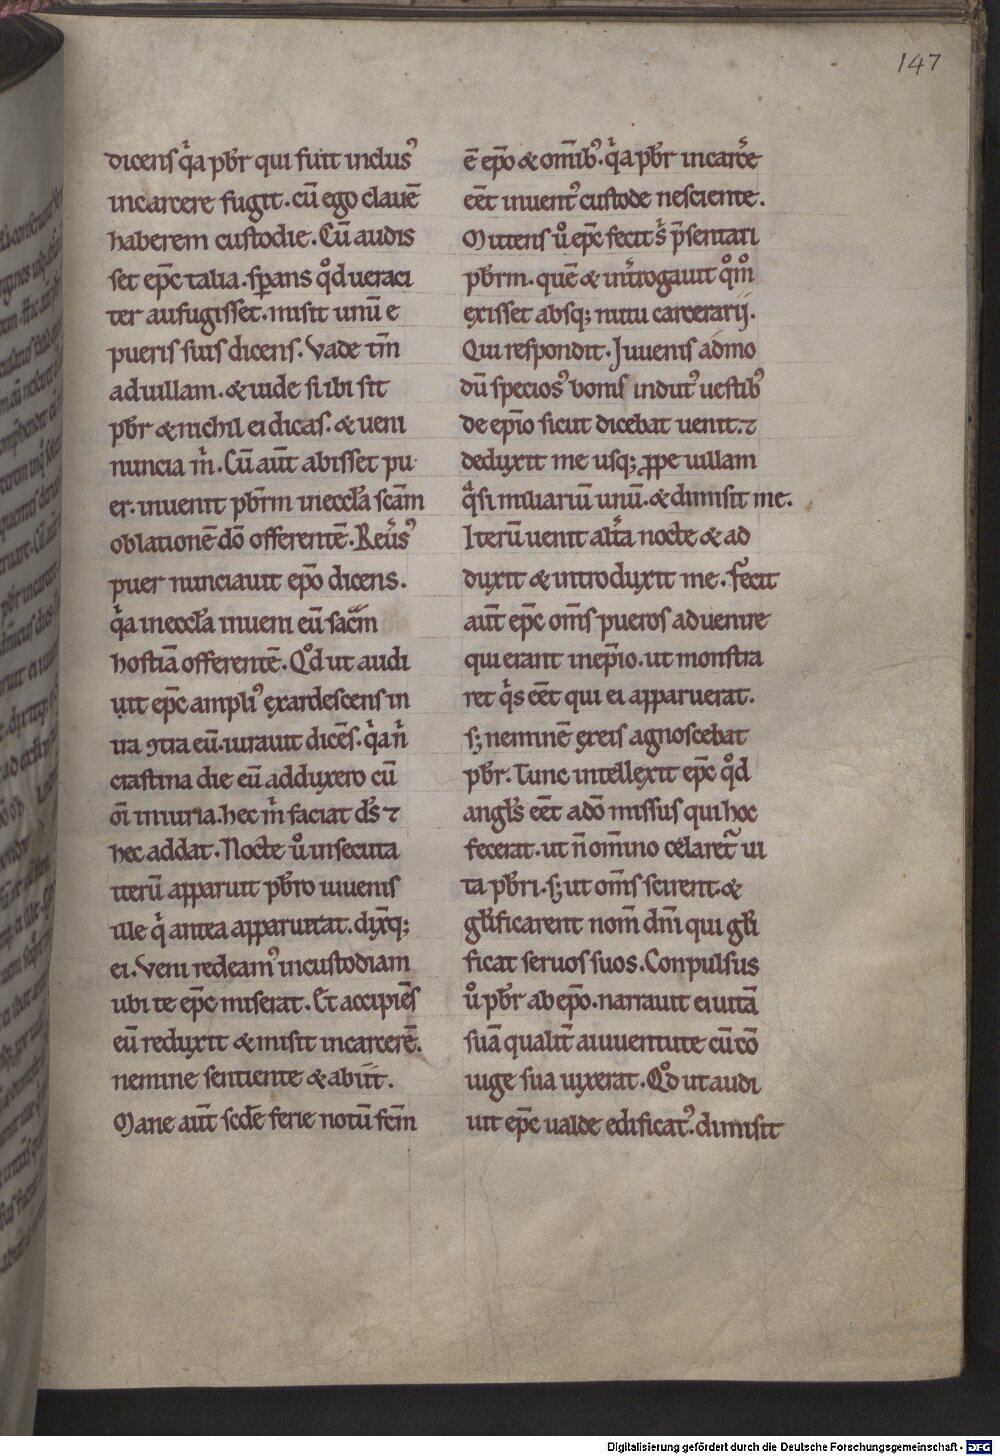 147
dicens q̾a pb̅r qui fuit inclusꝰ
incarcere fugit. cū ego clauē
haberem custodie. Cū audis
set ep̅c talia. sperans qͦd ueraci
ter aufugisset. misit unū e
pueris suis dicens. Vade tm̅
aduillam. & uide si ibi sit
pb̅r & nichil ei dicas. & ueni
nuncia m̍. Cū aūt abisset pu
er. inuenit pb̅rm ineccl̅a sc̅am
oblationē dō offerentē. Reũsꝰ
puer nunciauit ep̅o dicens.
q̾a ineccl̅a inueni eū sac̅m
hostiā offerentē. Qͦd ut audi
uit ep̅c ampliꝰ exardescens in
ua ꝯtra eū. iurauit dicēs. q̾a n̍
crastina die eū adduxero cū
oi̅ iniuria. hec m̍ faciat ds̅ ⁊
hec addat. Nocte ů insecuta
iterū apparuit pb̅ro iuuenis
ille q̍ antea apparuerat. dix̅q;
ei. Veni redeamꝰ incustodiam
ubi te ep̅c miserat. Et accipiēs
eū reduxit & misit incarcerē.
nemine sentiente & abiit.
Mane aūt sc̅de ferie notū fc̅m
ē ep̅o & om̅ibꝰ. q̾a pb̅r incarc̅e
eēt inuentꝰ custode nesciente.
Mittens ů ep̅c fecit s̍ p̅sentari
pb̅rm. quē & int̅rogauit qͦmͦ
exisset absq; nutu carcerarij.
Qui respondit. Iuuenis admo
dū speciosꝰ bonis indutꝰ uestibꝰ
de ep̅io sicut dicebat uenit. ⁊
deduxit me usq; ꝓpe uillam
q̾si miliariū unū. & dimisit me.
Iterū uenit alt̅a nocte & ad
duxit & introduxit me. Fecit
aūt ep̅c om̅s pueros aduenire
qui erant inep̅io. ut monstra
ret q̍s eēt qui ei apparuerat.
s; neminē ex eis agnoscebat
pb̅r. Tunc intellexit ep̅c qͦd
angl̅s eēt adō missus qui hoc
fecerat. ut n̅ om̅ino celaret̃ ui
ta pb̅ri. s; ut om̅s scirent. &
gl̅ificarent nom̅ dn̅i qui gl̅i
ficat seruos suos. Conpulsus
ů pb̅r ab ep̅o. narrauit ei uitā
suā qualit̅ aiuuentute cū cō
iuge sua uixerat. Qͦd ut audi
uit ep̅c ualde edificatꝰ. dimisit
Digitalisierung gefördert durch die Deutsche Forschungsgemeinschaft - DFG